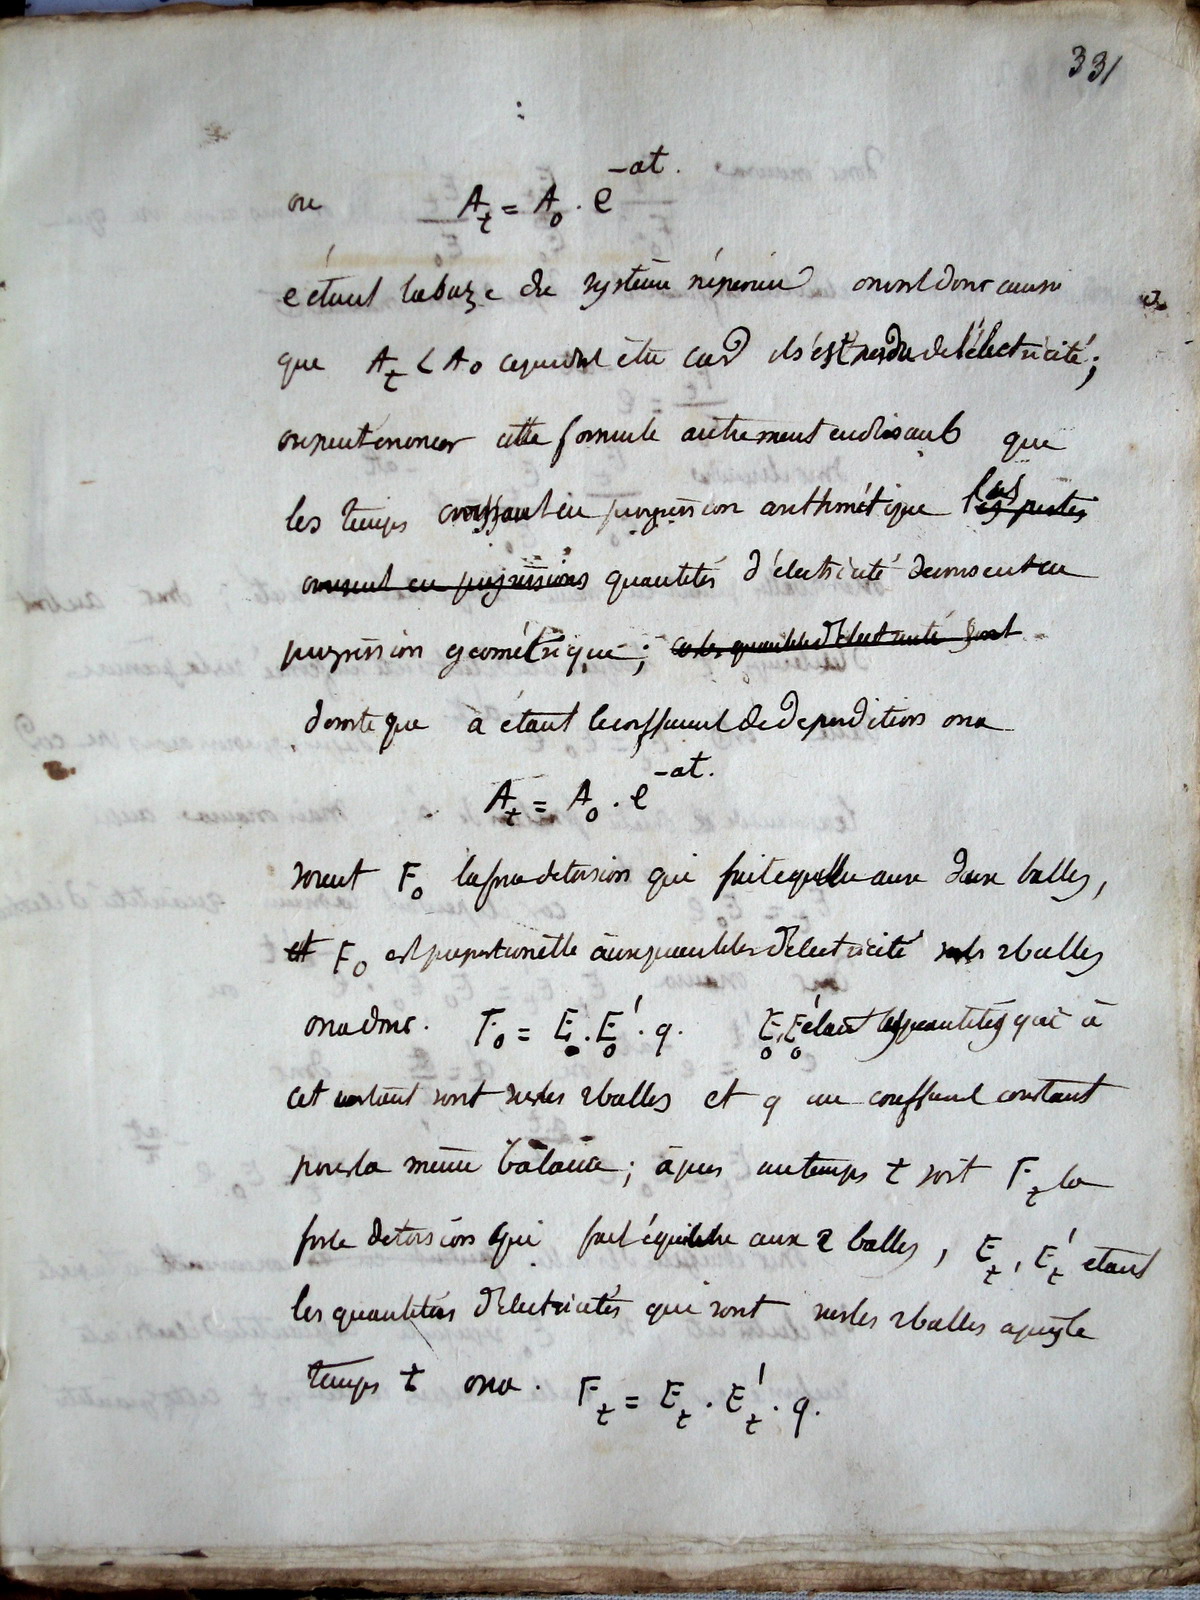 331
ou A_t = A_0 . e^{-at}.
e étant la baze du système népérien on voit donc aussi
que A_t < A_0 ce qui doit être car il s'est perdu de l'électricité;
on peut énoncer cette formule autrement en disant que
les temps croissant en progression arithmétique les pertes
croissent en progressions quantités d'électricité decroissent en
progression géométrique; car les quantités d'électricité sont
de sorte que a étant le coefficient de deperdition on a
A_t = A_0 . e^{-at}.
soient F_0 la force de torsion qui fait equilibre aux deux balles,
et F_0 est proportionelle aux quantités d'électricité sur les 2 balles
on a donc. F_0 = E_0 . E_0' . q. E_0, E_0' étant les quantités qui à
cet instant sont sur les 2 balles et q un coefficient constant
pour la même balance; après un temps t soit F_t la
force de torsion qui fait équilibre aux 2 balles, E_t, E_t' etant
les quantités d'électricités qui sont sur les 2 balles après le
temps t on a. F_t = E_t . E_t' . q.